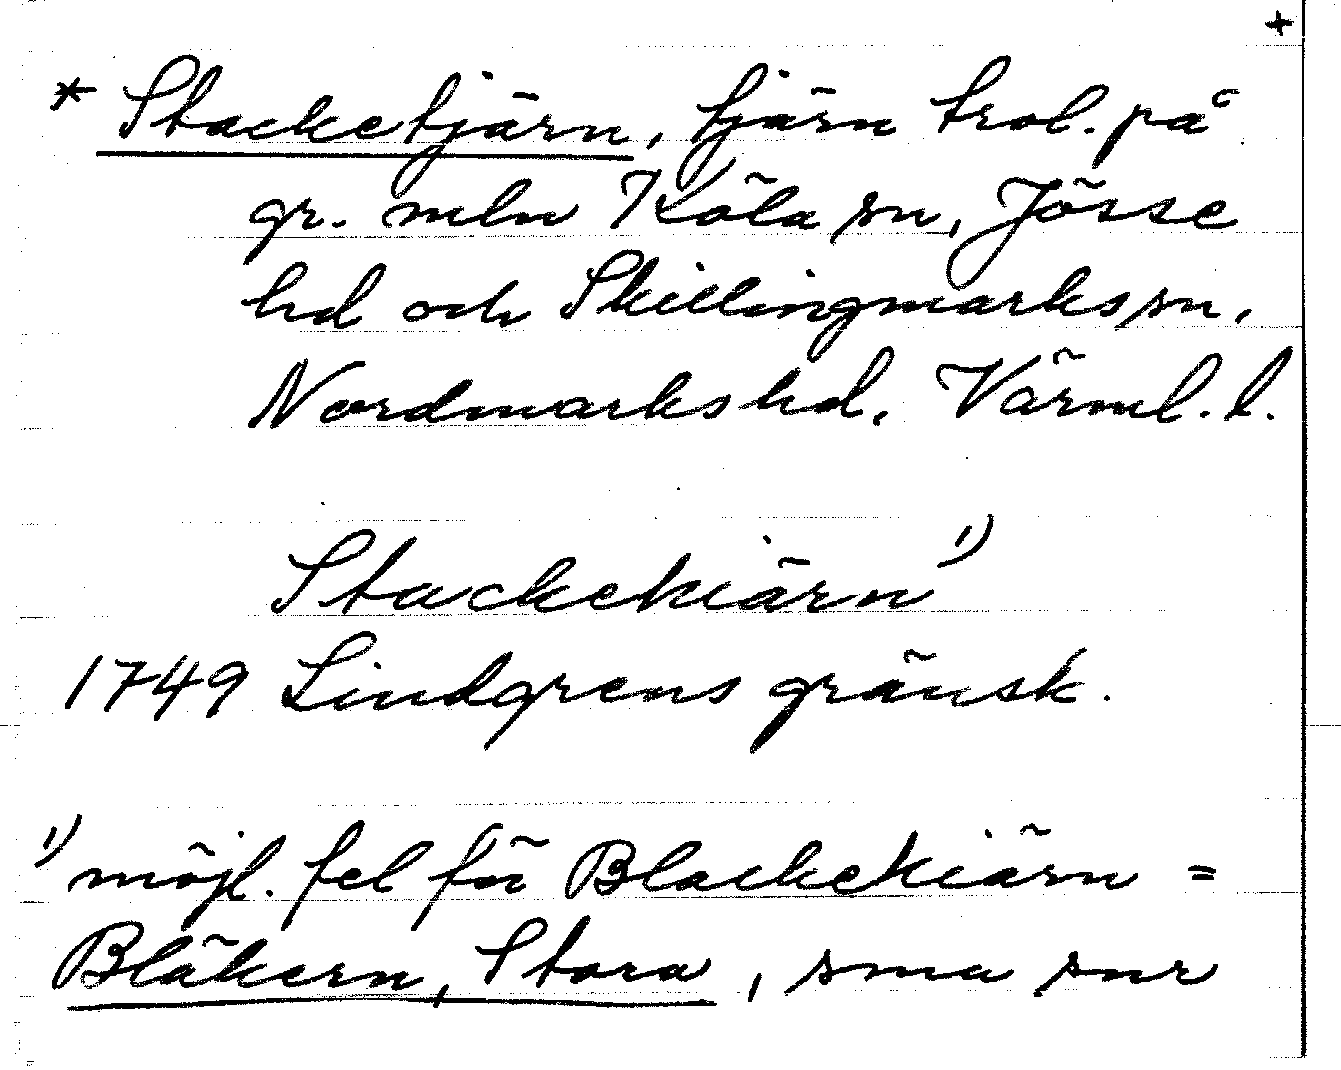 +
* Stacketjärn, tjärn trol. på
gr. mln Köla sn, Jösse
hd och Skillingmarks sn,
Nordmarks hd, Värml. l.
Stackekiärn 1)
1749 Lindgrens gränsk.
1) möjl. fel för Blackekiärn =
Bläkern, Stora, sma snr